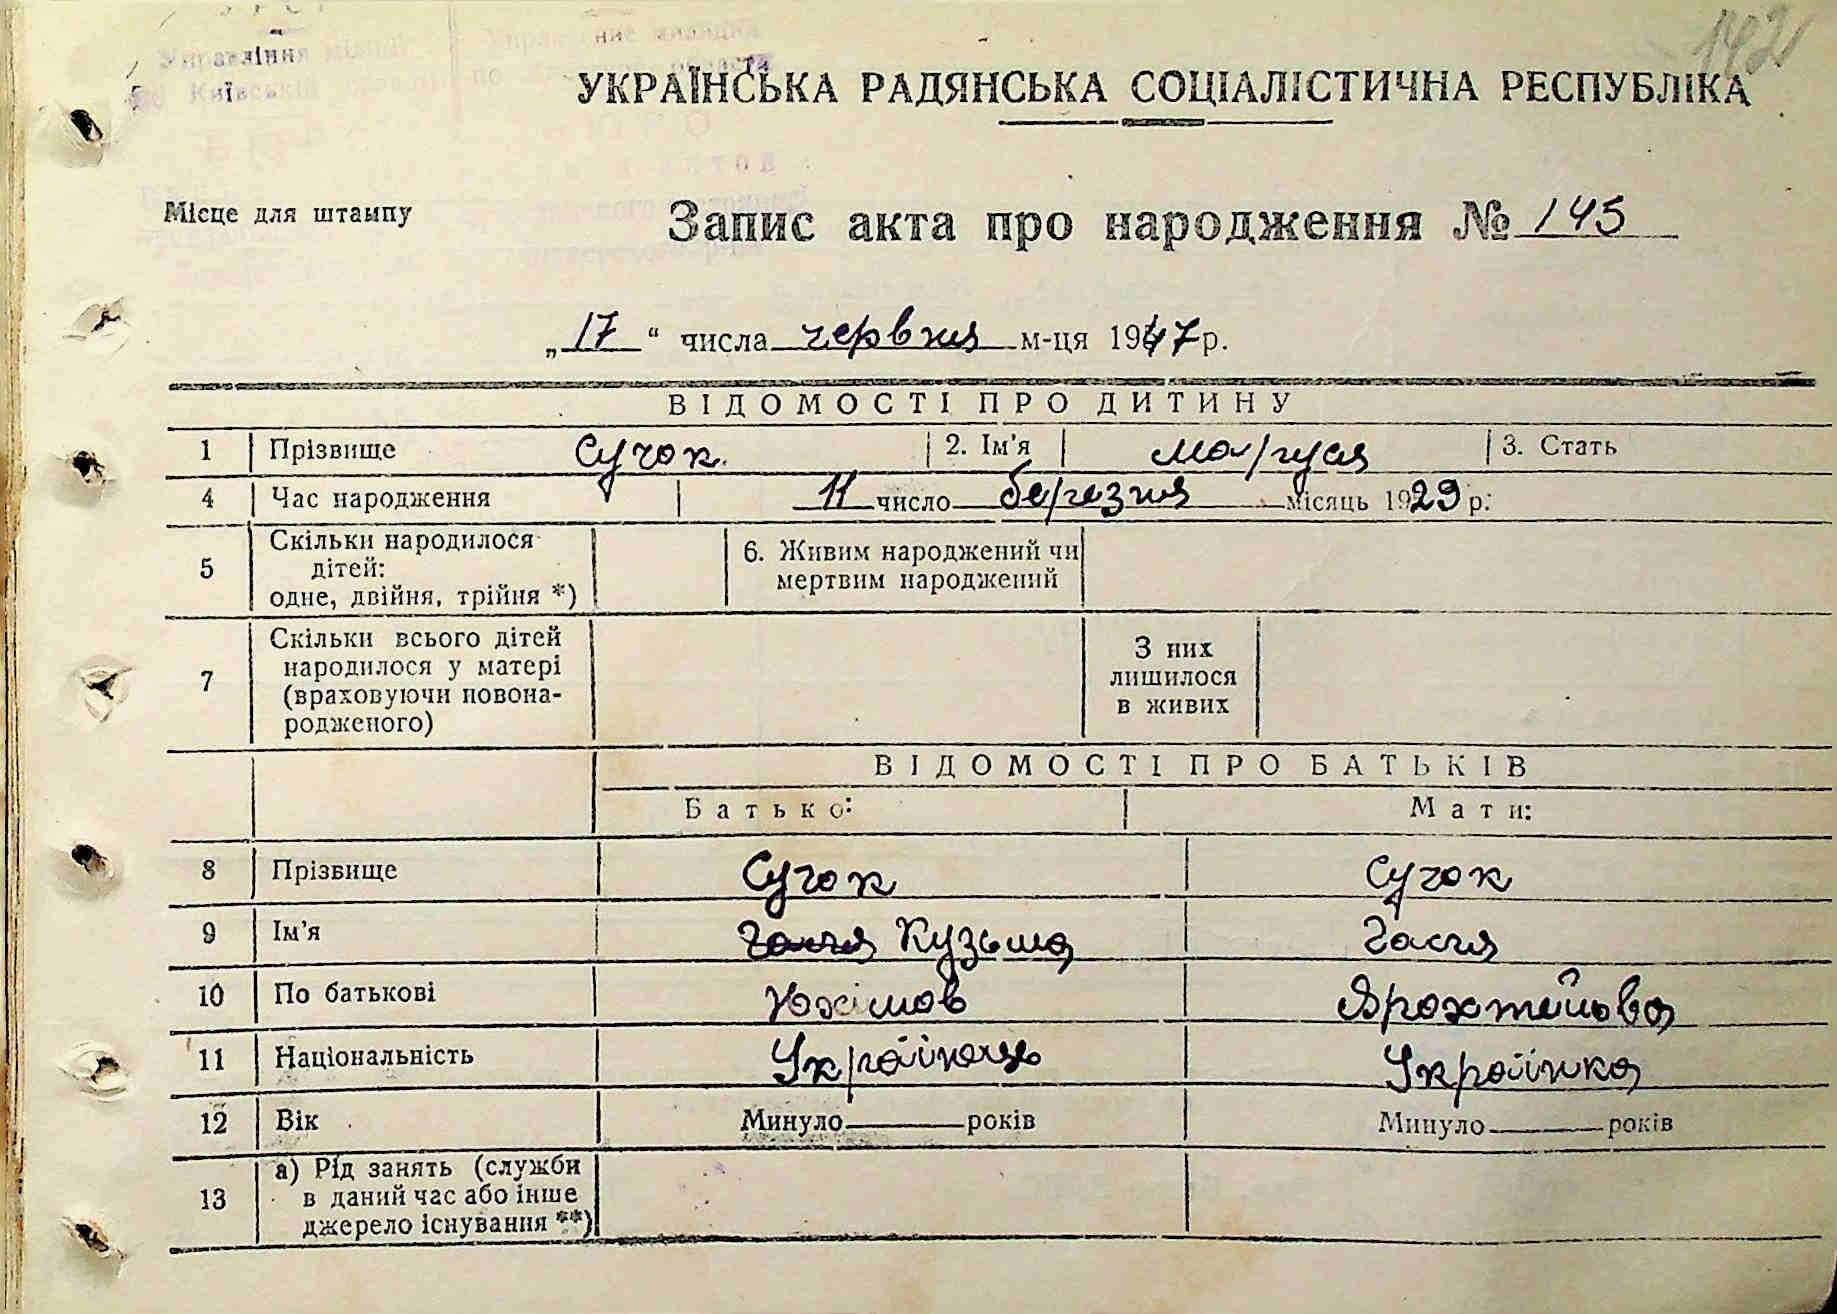 142
УКРАЇНСЬКА РАДЯНСЬКА СОЦІАЛІСТИЧНА РЕСПУБЛІКА
Місце для штампу
Запис акта про народження № 145
„ 17 “ числа червня м-ця 1947 р.
ВІДОМОСТІ ПРО ДИТИНУ
1 Прізвище Сучок. 2. Ім'я Маруся 3. Стать
4 Час народження 11 число березня місяць 1929 р.
5 Скільки народилося дітей: одне, двійня, трійня *) 6. Живим народжений чи мертвим народжений
7 Скільки всього дітей народилося у матері (враховуючи новонародженого) З них лишилося в живих
ВІДОМОСТІ ПРО БАТЬКІВ
Батько: Мати:
8 Прізвище Сучок Сучок
9 Ім'я Кузьма Гася
10 По батькові Юхімов
11 Національність Українець Українка
12 Вік Минуло років Минуло років
13 а) Рід занять (служби в даний час або інше джерело існування **)